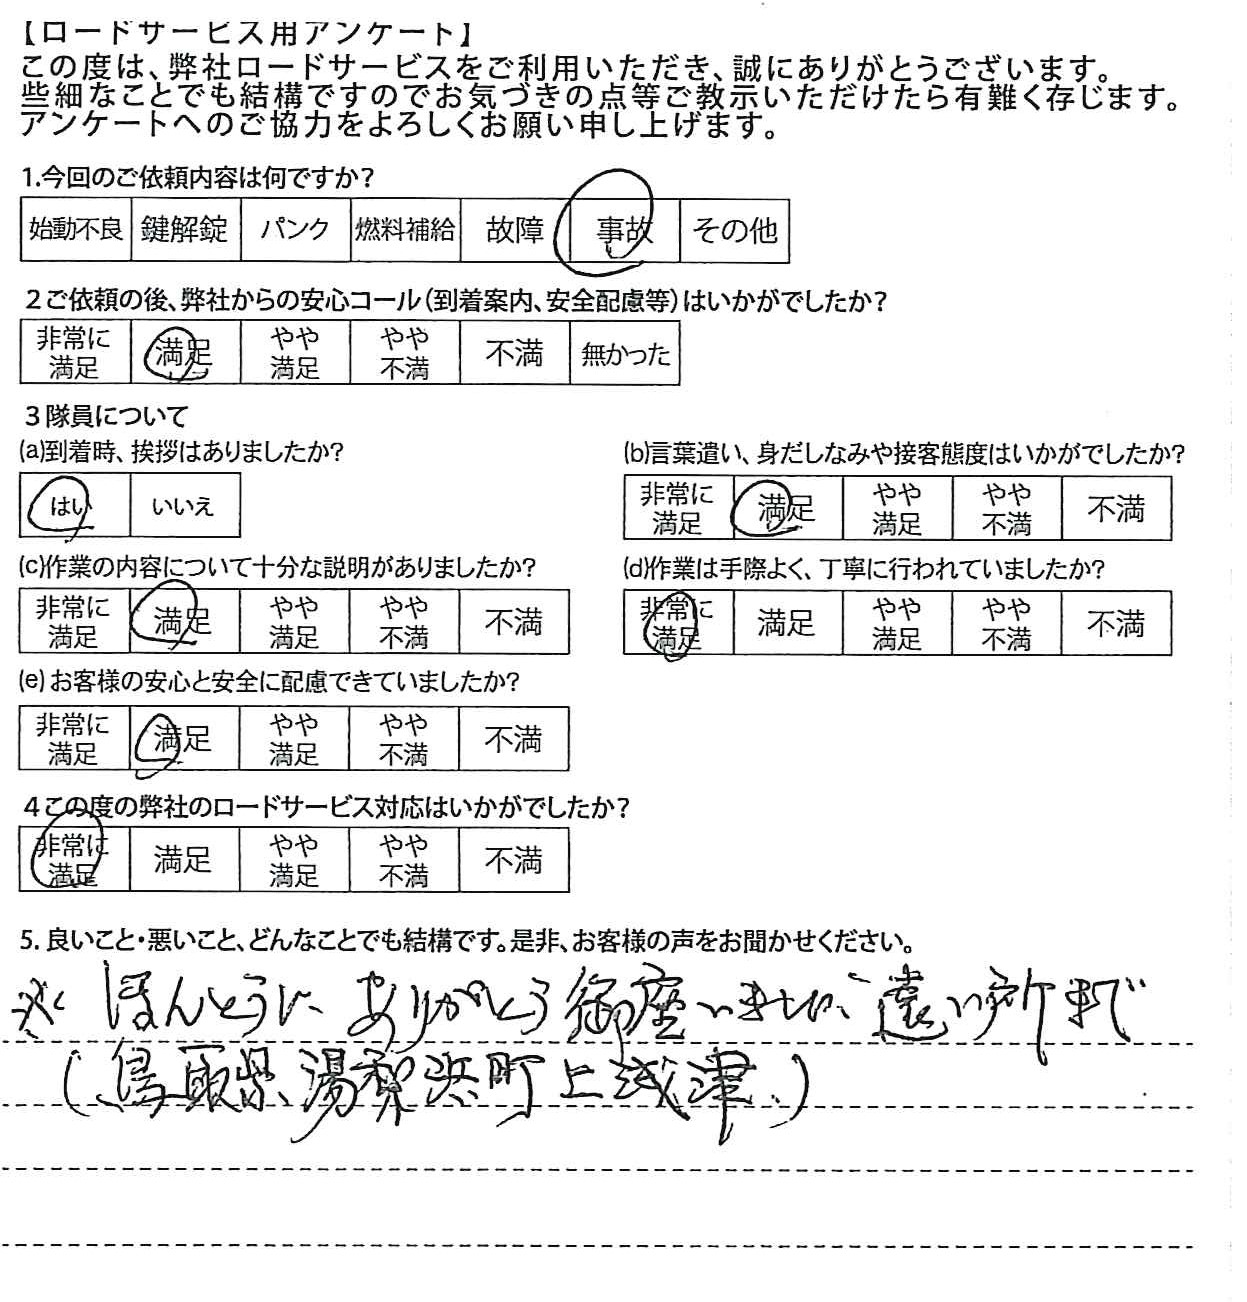 【ロードサービス用アンケート】
この度は、弊社ロードサービスをご利用いただき、誠にありがとうございます。
些細なことでも結構ですのでお気づきの点等ご教示いただけたら有難く存じます。
アンケートへのご協力をよろしくお願い申し上げます。
1.今回のご依頼内容は何ですか?
始動不良 鍵解錠 パンク 燃料補給 故障 事故 その他
2ご依頼の後、弊社からの安心コール(到着案内、安全配慮等)はいかがでしたか?
非常に満足 満足 やや満足 やや不満 不満 無かった
3隊員について
(a)到着時、挨拶はありましたか?
はい いいえ
(b)言葉遣い、身だしなみや接客態度はいかがでしたか?
非常に満足 満足 やや満足 やや不満 不満
(c)作業の内容について十分な説明がありましたか?
非常に満足 満足 やや満足 やや不満 不満
(d)作業は手際よく、丁寧に行われていましたか?
非常に満足 満足 やや満足 やや不満 不満
(e)お客様の安心と安全に配慮できていましたか?
非常に満足 満足 やや満足 やや不満 不満
4この度の弊社のロードサービス対応はいかがでしたか?
非常に満足 満足 やや満足 やや不満 不満
5.良いこと・悪いこと、どんなことでも結構です。是非、お客様の声をお聞かせください。
ほんとうに、ありがとう御座いました、遠い所まで
(鳥取県、湯梨浜町上浅津、)